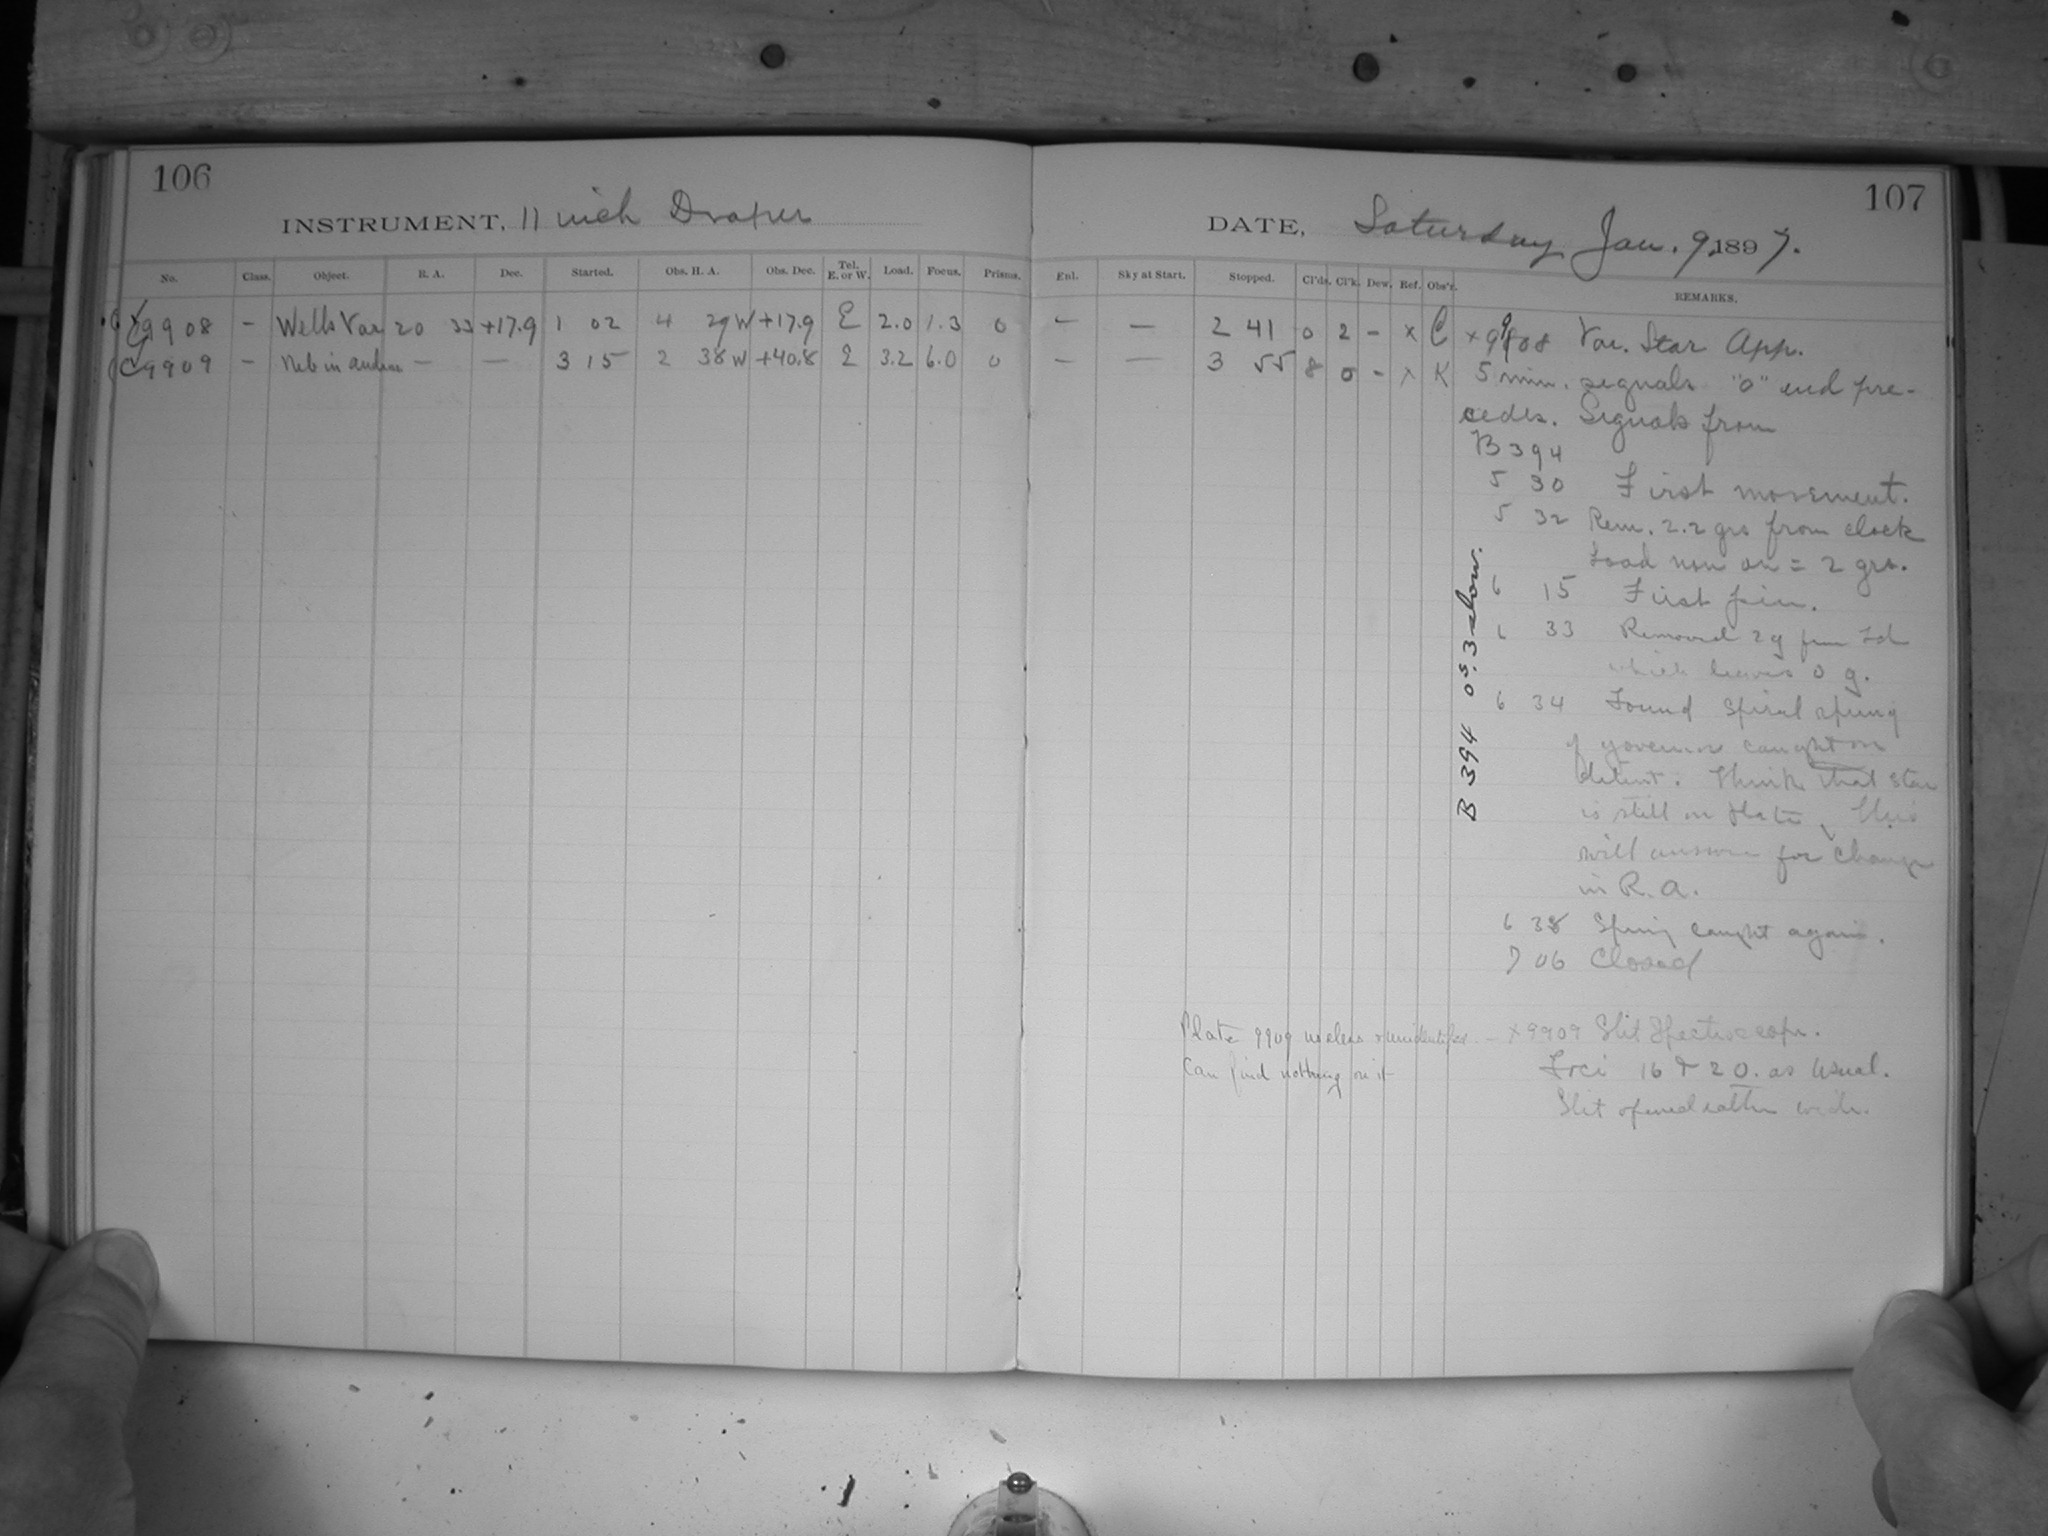 106
INSTRUMENT, 11 inch Draper
No. Class. Object. R. A. Dec. Started. Obs. H. A. Obs. Dec. Tel. E. or W. Load. Focus. Prisms.
C 9908 - Wells Var 20 33 +17.9 1 02 4 29 W +17.9 E 2.0 1.3 0
C 9909 - Neb in Androm — — 3 15 2 38 W +40.8 E 3.2 6.0 0
107
DATE, Saturday Jan. 9, 1897.
Enl. Sky at Start. Stopped. Cl'ds. Cl'k. Dew. Ref. Obs'r. REMARKS.
— — 2 41 0 2 - x C x 9908 Var. Star App.
— — 3 55 8 0 - x K 5 min. signals "0" end pre-
cedes. Signals from
B 394
5 30 First movement.
5 32 Rem. 2.2 grs from clock
Load now on = 2 grs.
6 15 First pin.
6 33 Removed 2 g from Ld
which leaves 0 g.
6 34 Found spiral spring
of governor caught on
detent. Think that star
is still on plate. This
will answer for change
in R. A.
6 38 Spring caught again.
7 06 Closed
B 394 0s.3 slow.
Plate 9909 useless & unidentified. — x 9909 Slit Spectroscope.
Can find nothing on it
Foci 16 & 20. as usual.
Slit opened rather wide.